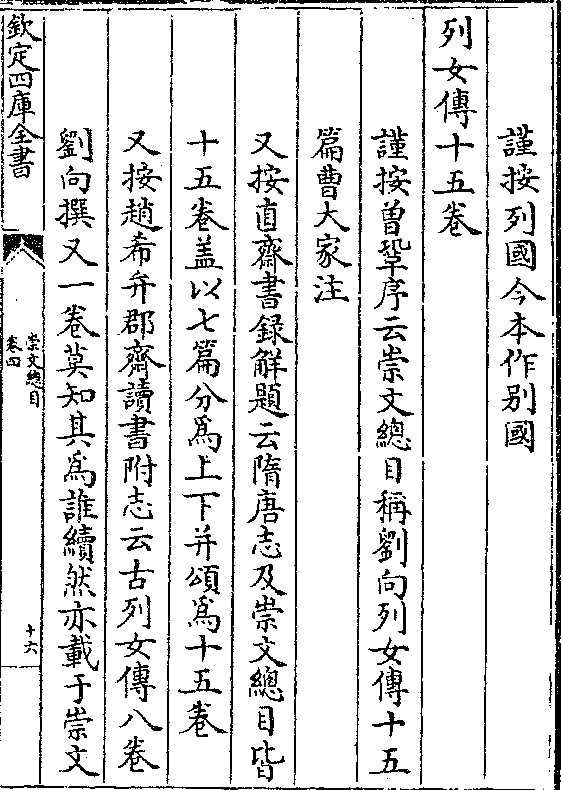 謹按列國今本作别國
列女傳十五卷
謹按曾鞏序云崇文總目稱劉向列女傳十五
篇曹大家注
又按直齋書録解題云隋唐志及崇文總目皆
十五卷盖以七篇分爲上下并頌爲十五卷
又按趙希弁郡齋讀書附志云古列女傳八卷
劉向撰又一卷莫知其爲誰續然亦載于崇文
欽定四庫全書
崇文總目
卷四
十六